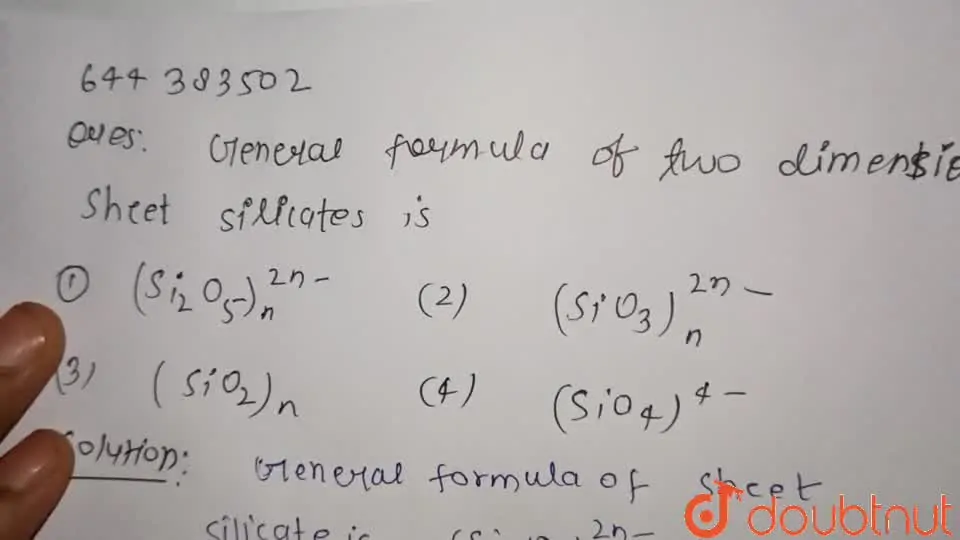 644 383502
Ques: General formula of two dimensio
sheet silicates is
① (Si₂O₅)ₙ²ⁿ⁻ (2) (SiO₃)ₙ²ⁿ⁻
(3) (SiO₂)ₙ (4) (SiO₄)⁴⁻
Solution: General formula of sheet
silicate is 2n-
doubtnut